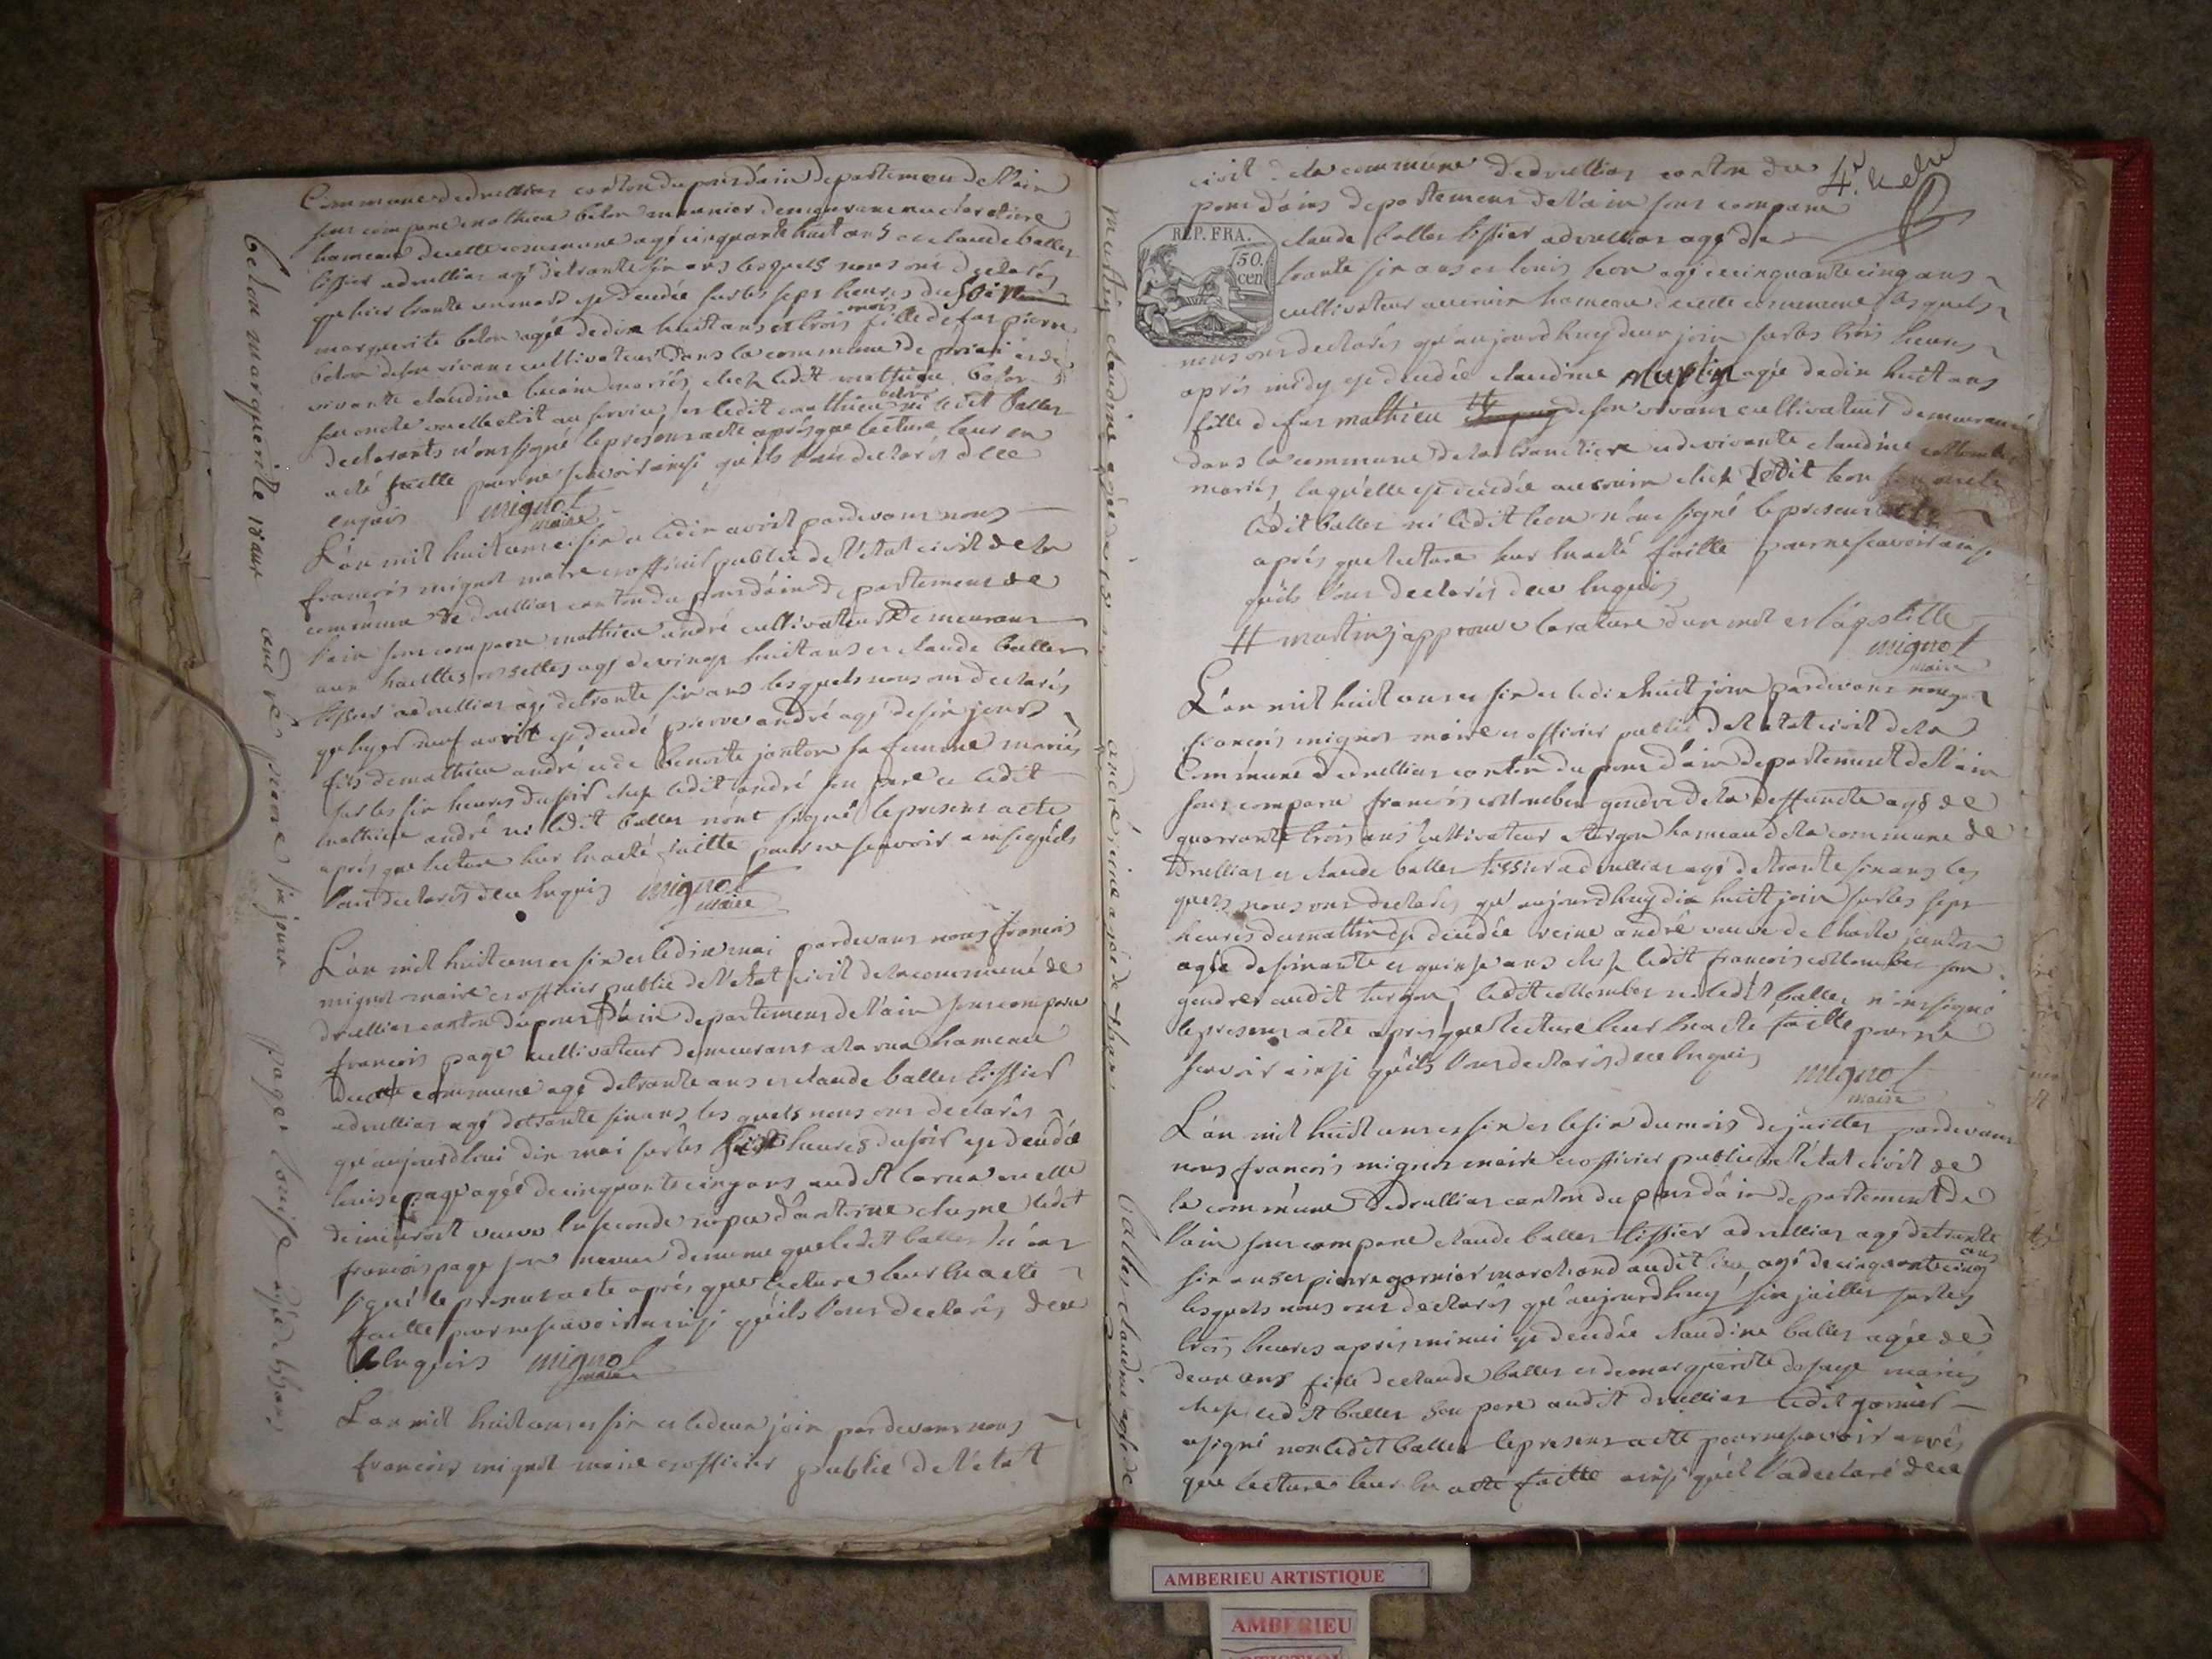 Commune de druillias canton du pons d'ain departement de l'ain
sont comparu mathieu belon meunier demeurant
hameau de cette commune agé cinquante huit ans et claude ballet
tissier a druillias agé de trante six ans lesquels nous ont declarés
que hier trante un mars est decedée sur les sept heures du soir
marguerite belon agée de dix huit ans et trois mois fille de feu pierre
belon de son vivant cultivateur dans la commune de
vivante claudine mariés chez ledit mathieu belon
son oncle ou elle etoit au service, et ledit mathieu belon ni ledit ballet
declarants n'ont signé le présent acte après que lecture leur en
acté faitte pour ne scavoir ainsi qu'ils l'ont declarés de ce
enquis mignot
maire
L'an mil huit cent et six et le dix avril pardevant nous
françois mignot maire et officier public de l'état civil de la
commune de druillias canton du pons d'ain departement de
l'ain sont comparu mathieu andré cultivateur demeurant
aux agé de vingt huit ans et claude ballet
tissier a druillias agé de trante six ans lesquels nous ont declarés
que hyer neuf avril est decedé pierre andré agé de six jours
fils de mathieu andré et de benoite janton sa femme mariés
sur les six heures du soir chez ledit andré son pere et ledit
mathieu andré ni ledit ballet n'ont signé le present acte
après que lecture leur en acté faitte pour ne scavoir ainsi qu'ils
l'ont declarés de ce enquis mignot
maire
L'an mil huit cent et six et le dix mai pardevant nous françois
mignot maire et officier public de l'état civil de la commune de
druillias canton du pons d'ain departement de l'ain sont comparu
françois page cultivateur demeurant a la rua hameau
de cette commune agé de trante ans et claude ballet tissier
a druillias agé de trante six ans lesquels nous ont declarés
qu'aujourdhui dix mai sur les huit heures du soir est decedée
louise page agée de cinquante cinq ans audit la rua ou elle
demeuroit veuve en seconde nopce d'antoine ledit
françois page son neveu de meme que ledit ballet n'ont
signé le present acte après que lecture leur en acté
faitte pour ne scavoir ainsi qu'ils l'ont declarés de ce
enquis mignot
maire
L'an mil huit cent et six et le deux join pardevant nous
françois mignot maire et officier public de l'état
belon marguerite 18 ans
andré pierre six jours
page louise agée de 55 ans
civil de la commune de druillias canton du
pons d'ains departement de l'ain sont comparu
4e.
REP. FRA.
50.
cen
claude ballet tissier a druillias agé de
trante six ans et louis bon agé de cinquante cinq ans
cultivateur au hameau de cette commune lesquels
nous ont declarés qu'aujourd huy deux join sur les trois heures
après midy est decedée claudine agée de dix huit ans
fille de feu mathieu # de son vivant cultivateur demeurant
dans la commune de la tranchiere et de vivante claudine collombet
mariés laquelle est decedée au chez ledit bon son oncle
ledit ballet ni ledit bon n'ont signé le present acte
après que lecture leur en acté faitte pour ne scavoir ainsi
qu'ils l'ont declarés de ce enquis
# martin j'approuve la rature d'un mot et l'apostille
mignot
maire
L'an mil huit cent et six et le dix huit join pardevant nous
françois mignot maire et officier public de l'état civil de la
Commune de druillias canton du pons d'ain departement de l'ain
sont comparu françois collombet gendre de la deffuncte agé de
quarrante trois ans cultivateur a turgon hameau de la commune de
Druillias et claude ballet tissier a druillias agé de trante six ans les
quels nous ont declarés qu'aujourd huy dix huit join sur les sept
heures du mattin est decedée reine andré veuve de janton
agée de soixante et quinze ans chez ledit françois collombet son
gendre audit turgon, ledit collombet ni ledit ballet n'ont signé
le present acté après que lecture leur en acté faitte pour ne
scavoir ainsi qu'ils l'ont declarés de ce enquis
mignot
maire
L'an mil huit cent et six et le six du mois de juillet pardevant
nous françois mignot maire et officier public de l'état civil de
la commune de druillias canton du pons d'ain departement de
l'ain sont comparu claude ballet tissier a druillias agé de trante
six ans et pierre garnier marchand audit lieu agé de cinquante cinq ans
lesquels nous ont declarés qu'aujourdhuy six juillet sur les
trois heures après minui est decedée claudine ballet agée de
deux ans fille de claude ballet et de marguerite mariés
chez ledit ballet son pere audit druillias ledit garnier
a signé non ledit ballet le present acte pour ne scavoir après
que lecture leur en acté faitte ainsi qu'il l'a declaré de ce
martin claudine agée de 18 ans
andré reine agée de 75 ans
ballet claudine agée de
AMBERIEU ARTISTIQUE
AMBERIEU